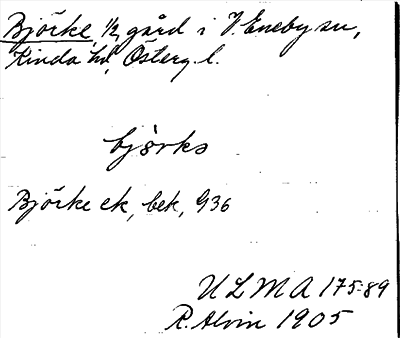 Björke, 1/2 gård i V. Eneby sn,
Kinda hd, Österg. l.
björks
Björke ek, bek, 936
ULMA 175:89
R. Alvin 1905